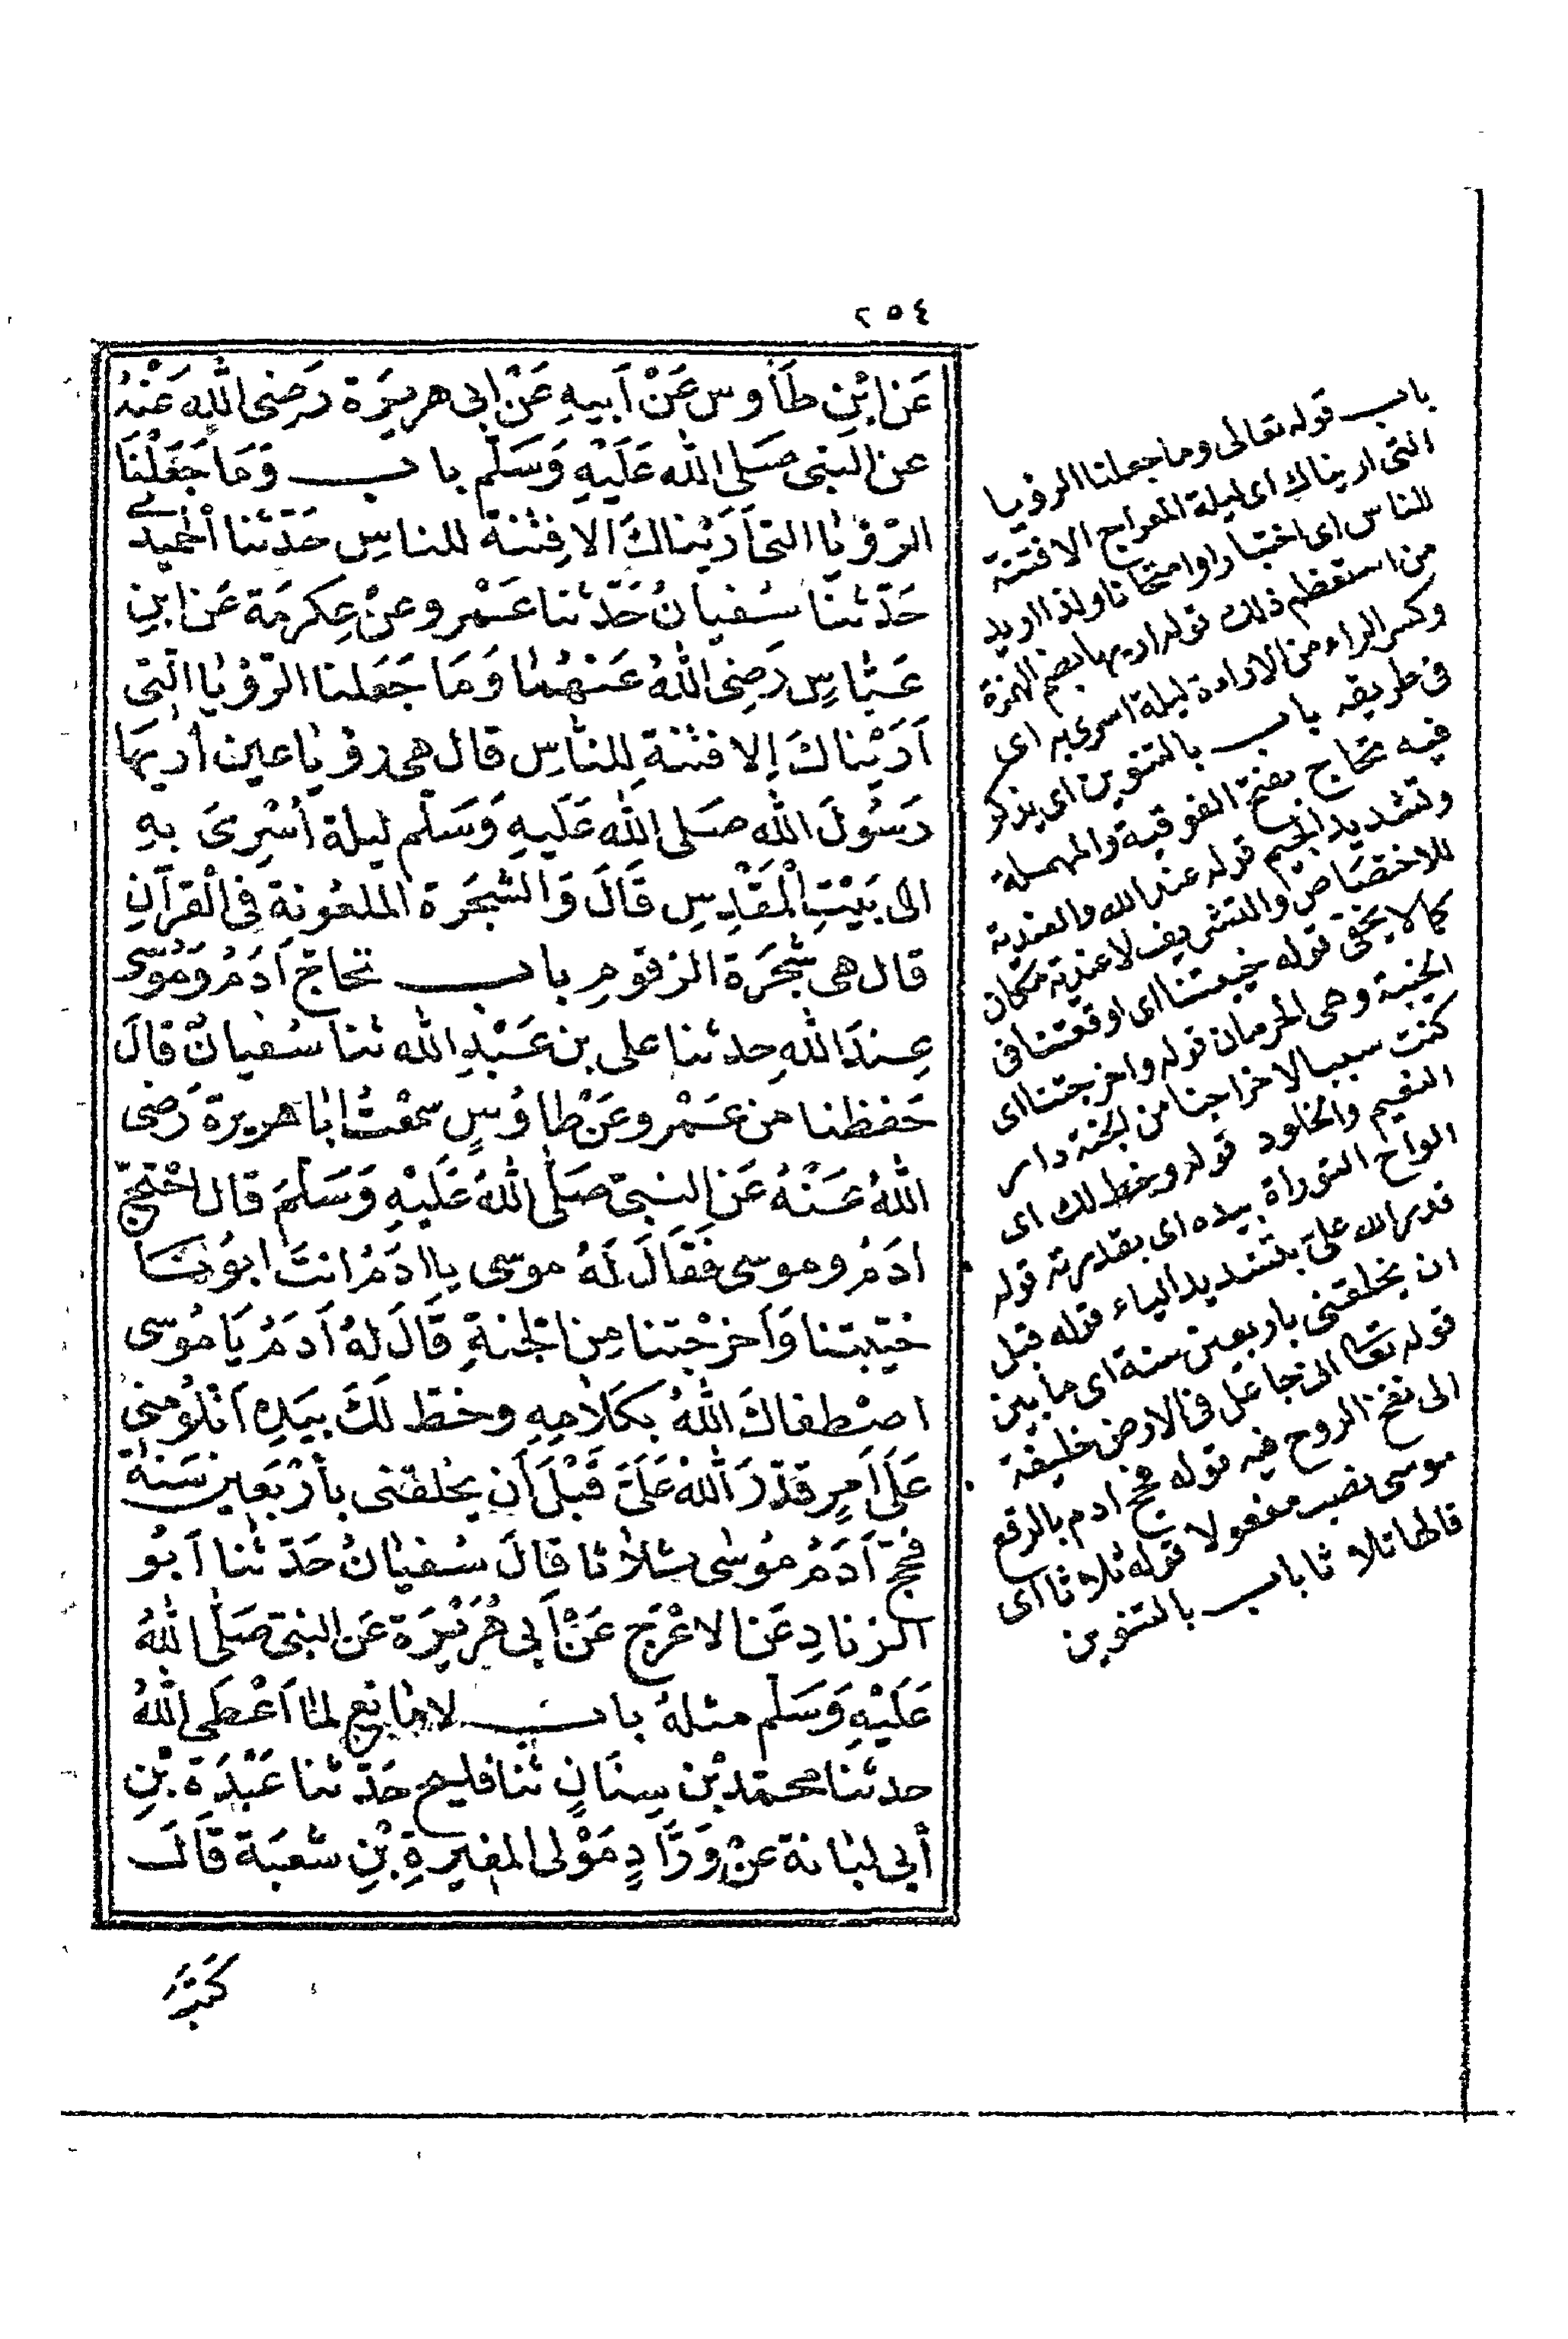 ٢٥٤
عَنِ ابْنِ طَاوس عَنْ أَبيهِ عَنْ ابى هريرَة رَضِىَ اللهُ عَنْهُ
عن النبى صَلى الله عَلَيْهِ وَسَلّم باب وَمَا جَعَلْنَا
الرّؤيا التى أَرَيْناكَ الا فِتْنَةً للناسِ حَدّثنا الْحميدى
حَدّثنَا سُفيانُ حَدّثنا عَمْرو عنْ عِكرمَة عَن ابنِ
عَبّاسٍ رَضِىَ اللهُ عَنْهُما وَمَا جَعَلنا الرّؤيا التى
أَرَيْناكَ إلا فتنةً لِلناسِ قال هى رؤيا عين أُريهَا
رَسُولَ الله صَلى الله عَلَيهِ وَسَلّم ليلة أُسْرِىَ بهِ
الى بَيْتِ الْمَقْدِسِ قَالَ وَالشجَرة الملعُونة فى الْقرآنِ
قال هى شجَرَة الزقومِ باب تحاجّ آدَمُ وَمُوسَى
عِندَ اللهِ حدثنا على بن عَبْدِ الله ثنا سُفيانُ قالَ
حَفظنا من عَمْرو عَنْ طاوُسٍ سمعْتُ أبا هريرة رَضى
اللهُ عَنْهُ عَنِ النبىّ صَلّى اللهُ عَلَيْهِ وَسَلّمَ قال احْتجّ
ادَمُ وموسى فَقَالَ لَهُ موسى يا ادَمُ انتَ ابُونَا
خيّبتنا وَأَخرَجْتنا مِن الجنةِ قَالَ لهُ آدَمُ يَا مُوسى
اصْطفاكَ اللهُ بكَلامِهِ وخطّ لَكَ بيَدِهِ أتلُومنى
عَلَى أَمرٍ قدّرَ اللهُ عَلَىّ قَبْلَ أَن يخلقنى بأرْبَعين سَنةً
فحجّ آدَمُ مُوسَى ثلاثا قالَ سُفيانُ حَدّثنا أَبُو
الزنادِ عَن الاعْرَج عَنْ أَبى هُرَيْرَة عَن النبىّ صَلّى اللهُ
عَلَيْهِ وَسَلّم مثلهُ باب لا مانِع لما أَعْطَى اللهُ
حدثنا محمّد بْن سِنَانٍ ثنا فليح حَدّثنا عَبْدَة بْنِ
أبى لبابة عنْ وَرّادٍ مَوْلى المغيرةِ بْنِ شُعبَة قَالَ
كَتبَ
باب قوله تعالى وما جعلنا الرؤيا
التى اريناك اى ليلة المعراج الا فتنة
للناس اى اختبارا وامتحانا ولذا ارتد
من استعظم ذلك قوله اريها بضم الهمزة
وكسر الراء من الاراءة ليلة اسرى به اى
فى طريقه باب بالتنوين اى يذكر
فيه تحاج بفتح الفوقية والمهملة
وتشديد الجيم قوله عند الله والعندية
للاختصاص والتشريف لا عندية مكان
كما لا يخفى قوله خيبتنا اى اوقعتنا فى
الخيبة وهى الحرمان قوله واخرجتنا اى
كنت سببا لاخراجنا من الجنة دار
النعيم والخلود قوله وخط لك اى
الواح التوراة بيده اى بقدرته قوله
قدر الله علىّ بتشديد الياء قوله قبل
ان يخلقنى باربعين سنة اى ما بين
قوله تعالى انى جاعل فى الارض خليفة
الى نفخ الروح فيه قوله فحج ادم بالرفع
موسى نصب مفعولا قوله ثلاثا اى
قالها ثلاثا باب بالتنوين